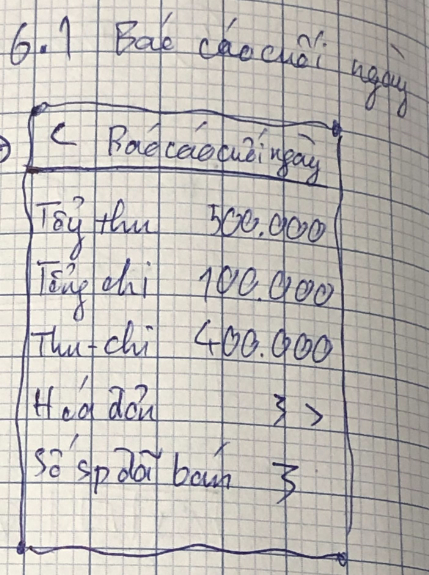 6.1 Báo cáo cuối ngày
< Báo cáo cuối ngày
Tổng thu 500.000
Tổng chi 100.000
Thu - chi 400.000
Hoá đơn 3 >
Số sp đã bán 3